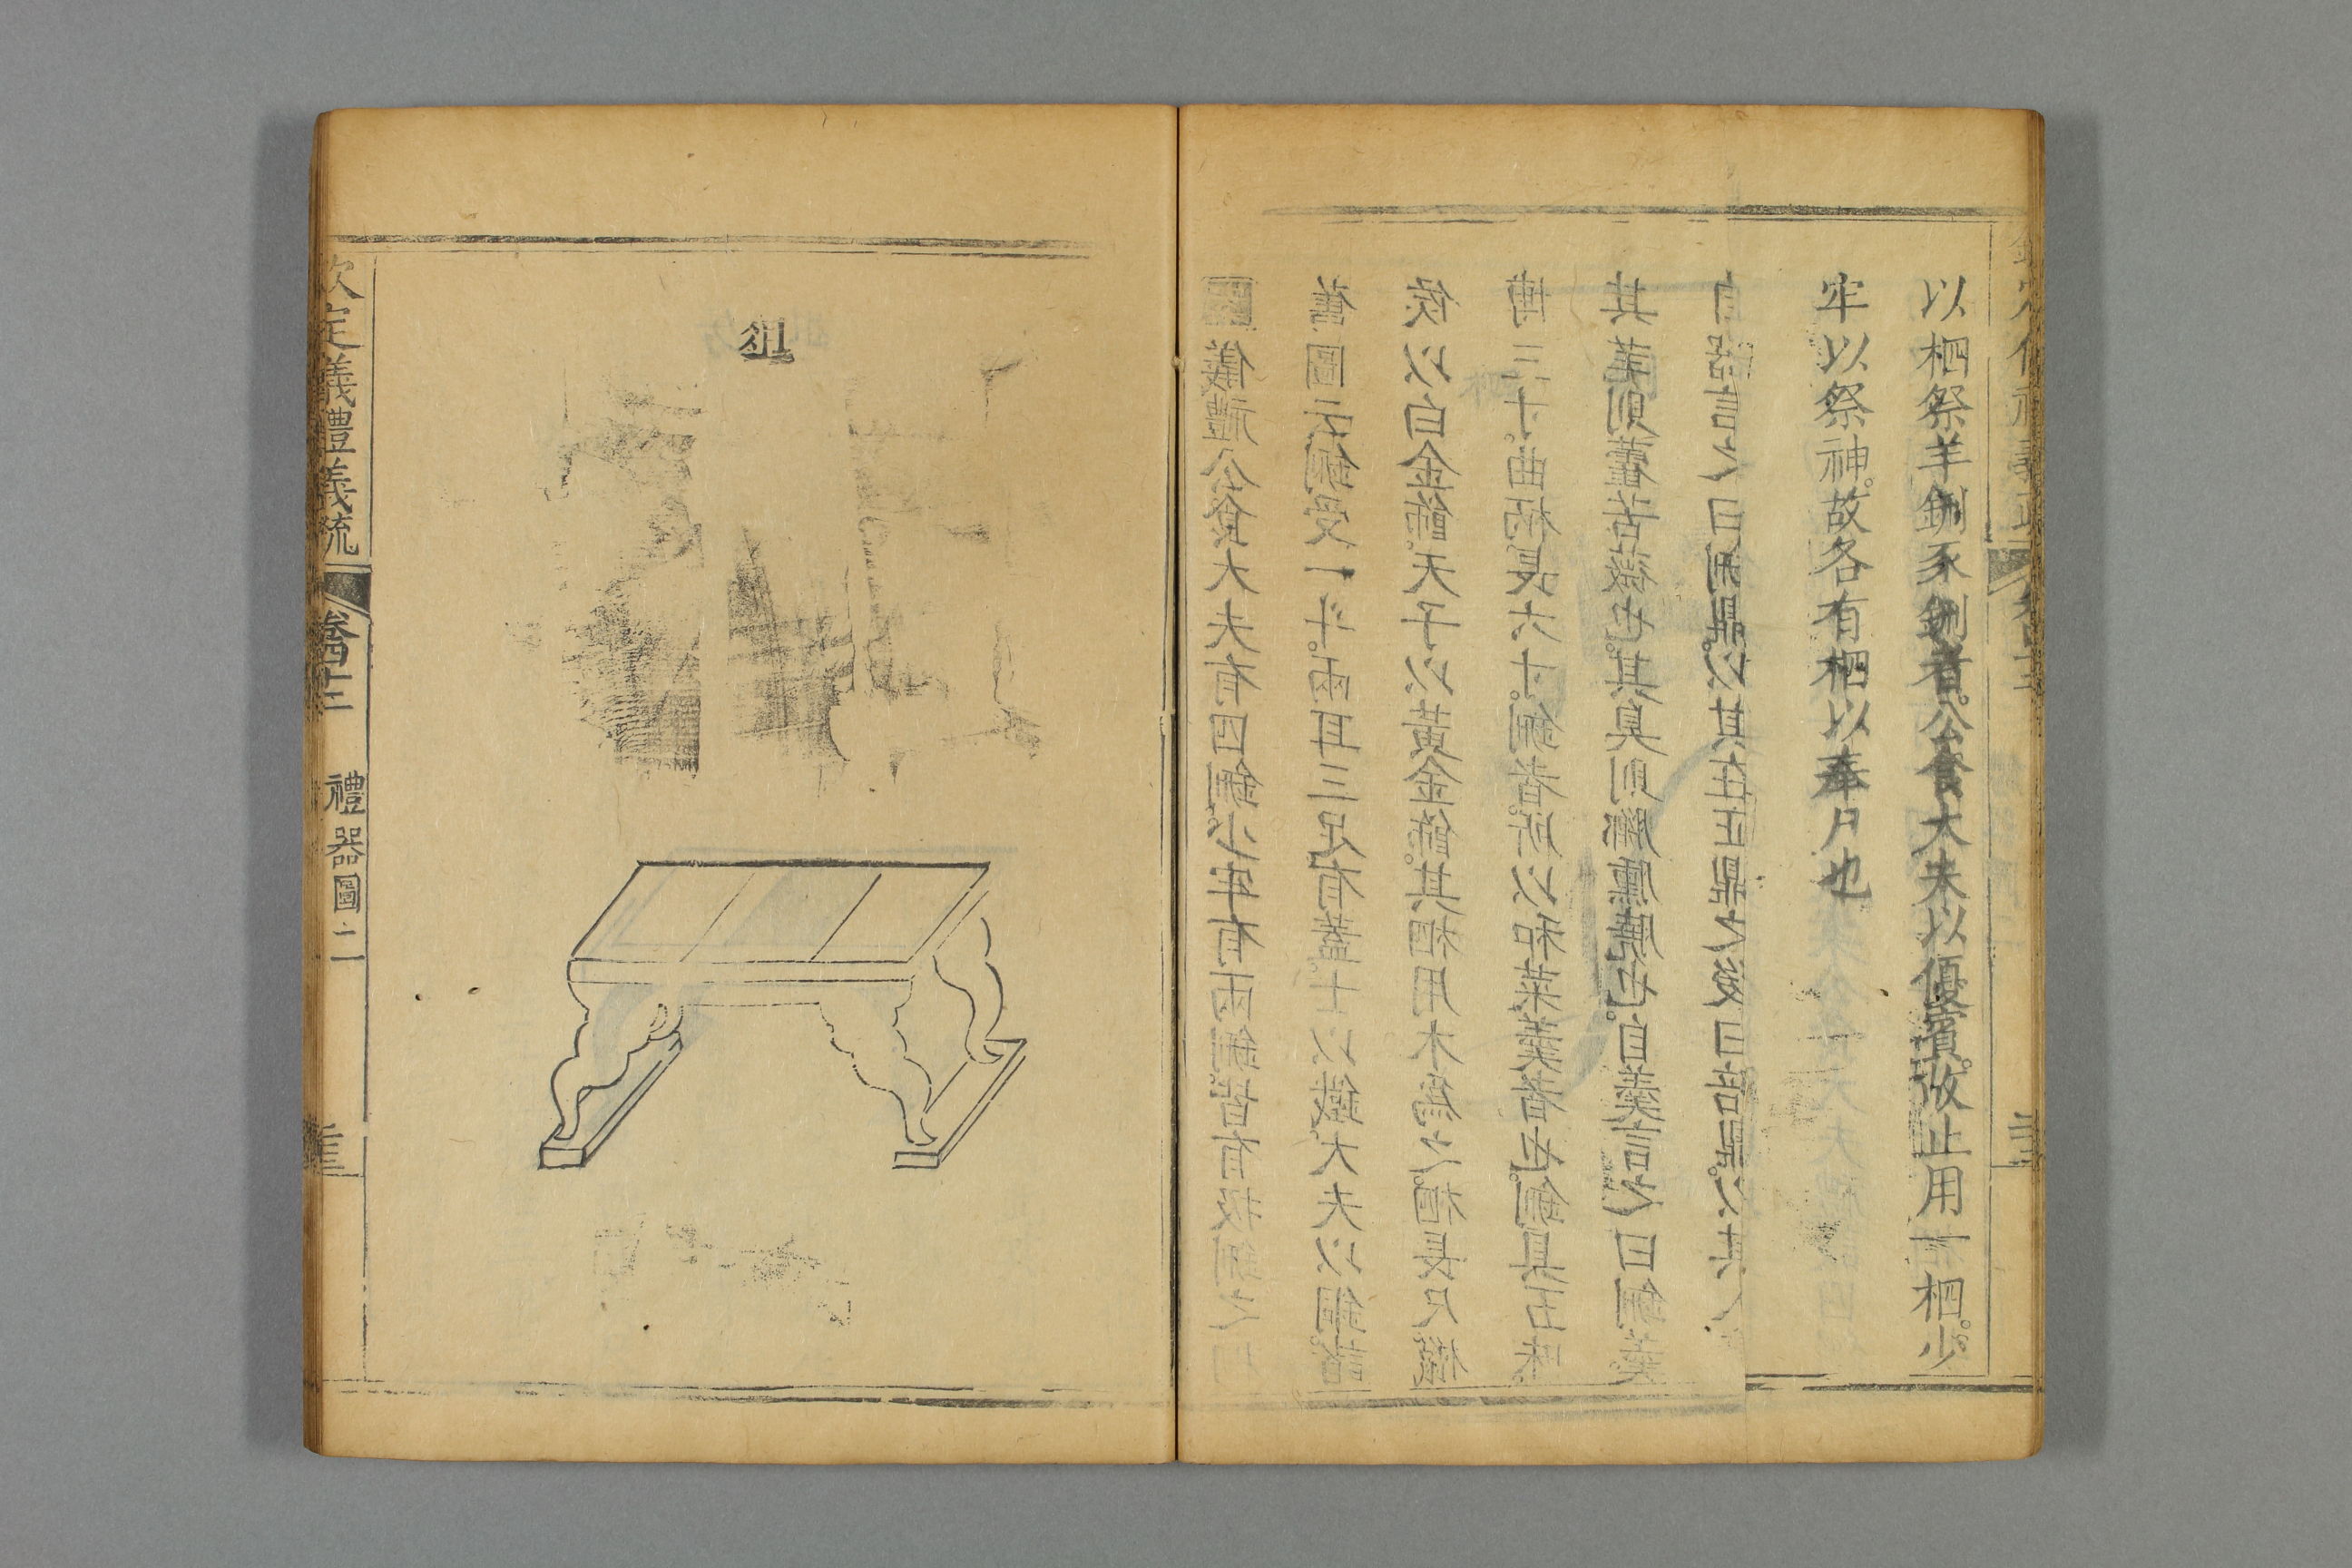 以柶祭羊鉶豕鉶者。公食大夫以優賓。故止用一柶。少
牢以祭神。故各有柶以奉尸也
儀禮公食大夫有四鉶。少牢有兩鉶。皆有扱鉶之
舊圖云鉶受一斗。兩耳三足有蓋。士以鐵。大夫以銅。諸
侯以白金飾。天子以黃金飾。其柶用木為之。柶長尺櫼
博三寸。曲柄長六寸。鉶者。所以和菜羹者也。鉶具五味
其芼則藿苦薇也。其臭則膷臐膮也。自羹言之曰鉶羹
自器言之曰鉶鼎。以其在正鼎之後曰陪鼎。以其
俎
欽定義禮義疏
卷四十三
禮器圖二